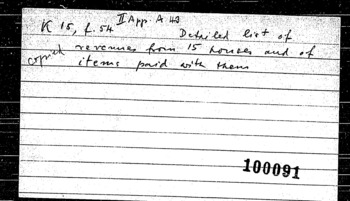 II App. A 48
K 15, f. 54 Detailed list of
copied revenues from 15 houses and of
items paid with them
100091